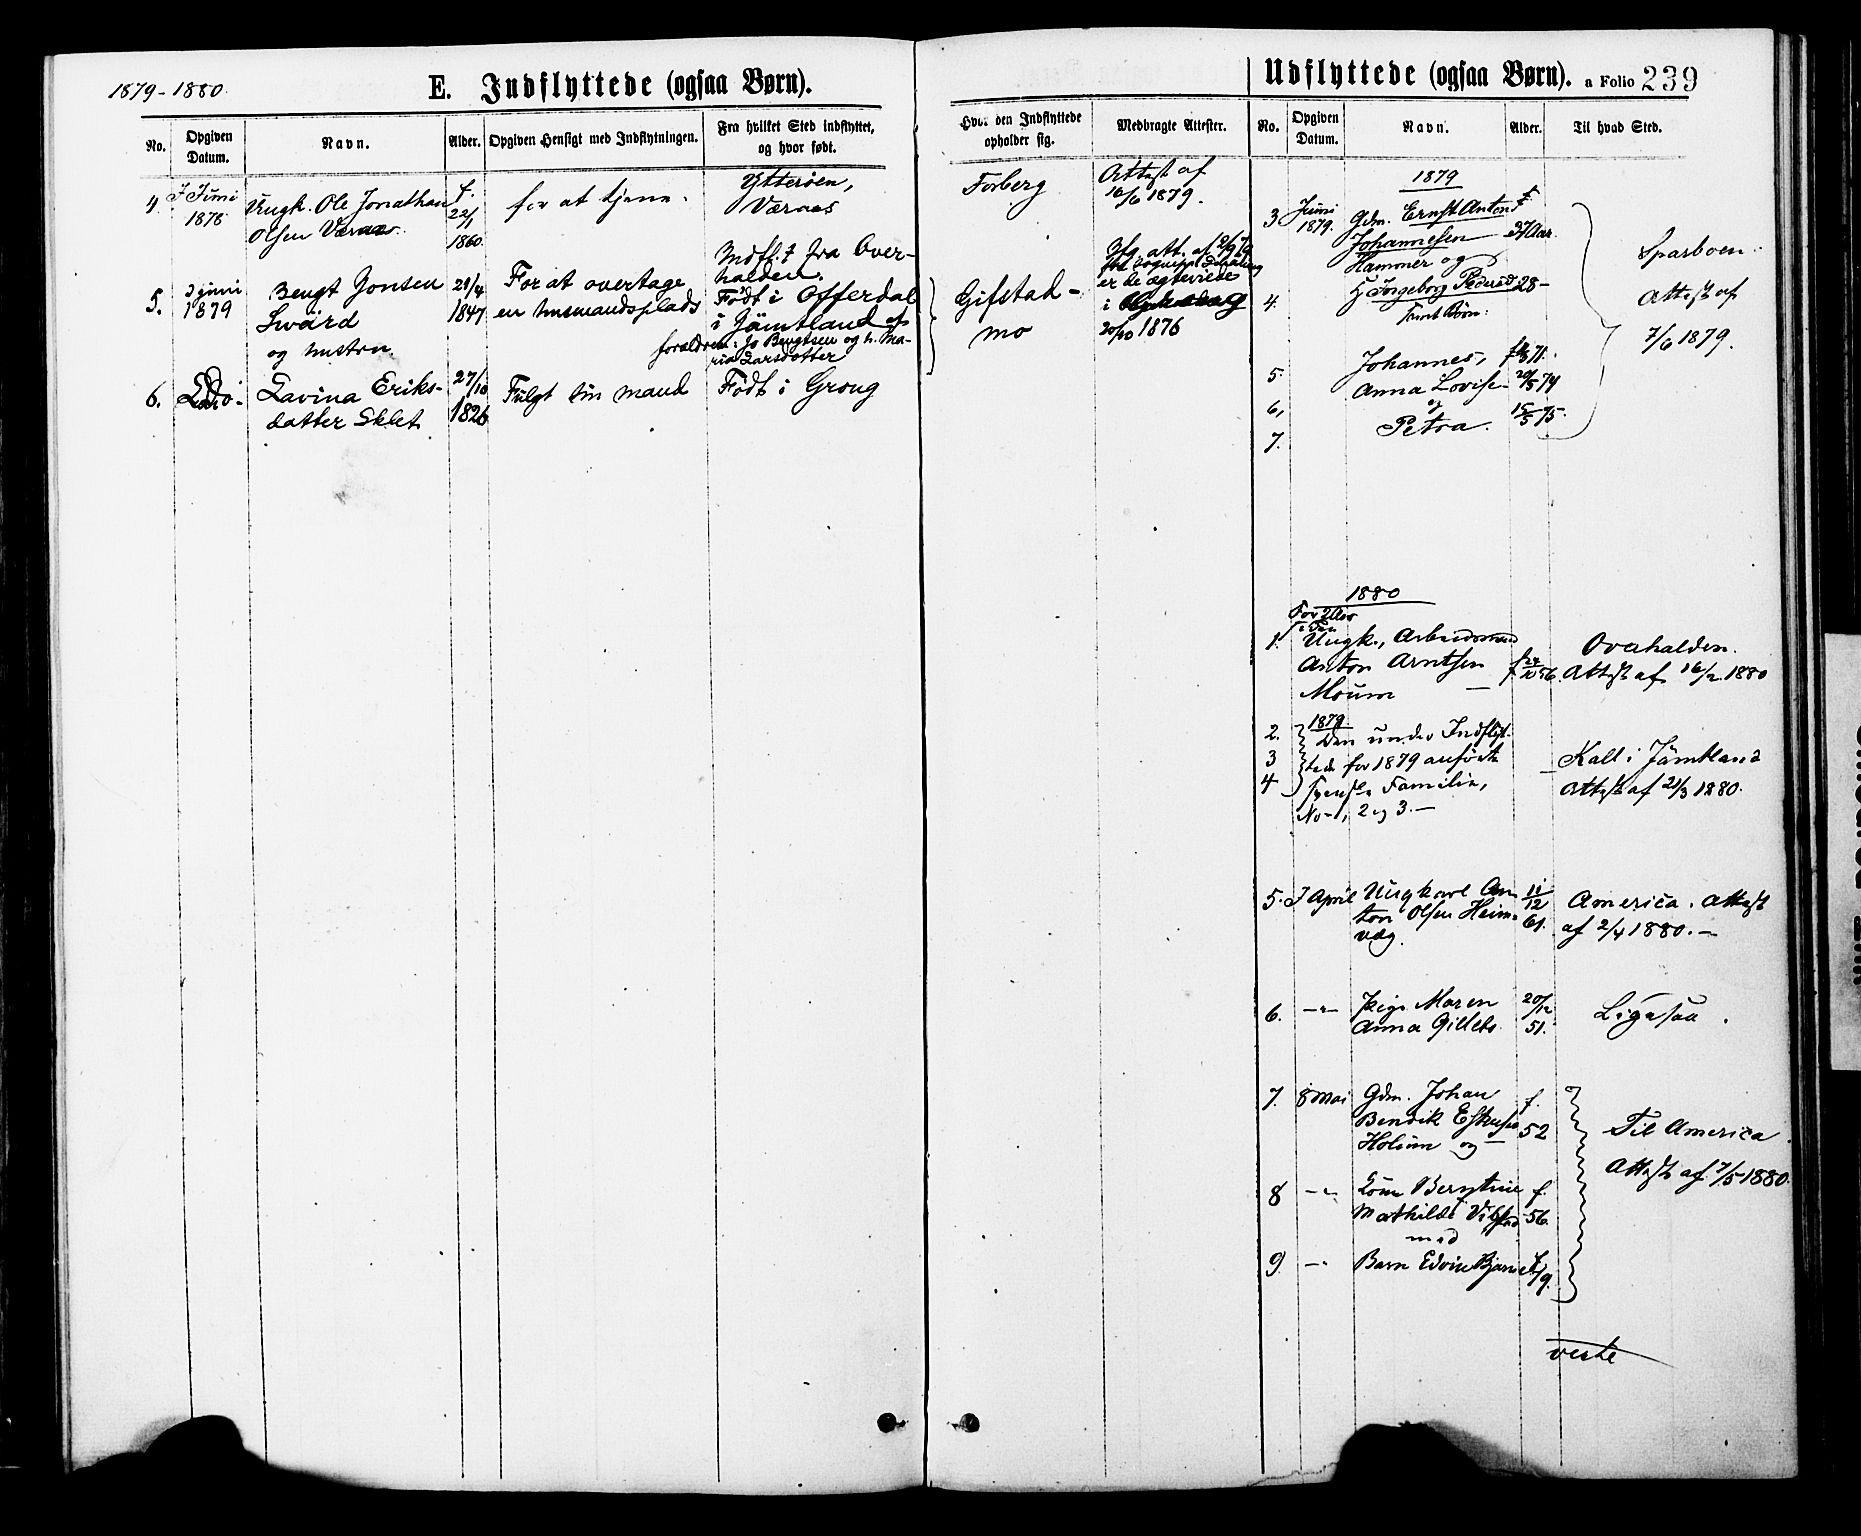 1879-1880.
E. Indflyttede (ogsaa Børn).
No.
Opgiven Datum.
Navn.
Alder.
Opgiven Hensigt med Indflytningen.
Fra hvilket Sted indflyttet, og hvor født.
4
I Juni
1878
Ungk. Ole Jonathan
Olsen Værnes
f.
22/1
1860
for at tjene.
Ytterøen,
Værnes
5.
I juni
1879
Bengt Jonsen
Svärd
og hustru
21/4
1847
For at overtage
en husmandsplads
Indfl.t fra Over-
halden.
Født i Offerdal
i Jämtland af
forældre: Jo Bengtsen og h. Ma-
ria Larsdatter
6.
Lavina Eriks-
datter Sklet
27/10
1826
Fulgt sin mand
Født i Grong
Udflyttede (ogsaa Børn). a Folio 239
Hvor den Indflyttede opholder sig.
Medbragte Attester.
No.
Opgiven Datum.
Navn.
Alder.
Til hvad Sted.
Forberg
Attest af
16/6 1879.
Gifstad-
mo
er de ægteviede
i
20/10 1876
1879
3
Juni
1879.
Gdm. Ernst Anton
Johannesen
Hammer og
37 Aar.
4.
H Ingeborg Pedersd
28-
samt Børn:
5.
Johannes,
71.
6,
Anna Lovise
20/5 74
og
7.
Petra.
15/5 75.
Sparboen.
Attest af
7/6 1879.
1880
For 2 Aar
1.
Ungk., Arbeidsmand
Anton Arntsen
Moum
f 24/10 56.
Overhalden.
Attest af 16/2 1880
2.
3
4
1879.
Den under Indflyt-
tede for 1879 anførte
svenske Familie,
No 1, 2 og 3.-
Kall i Jämtland
Attest af 21/3 1880.
5.
I April
Ungkarl An
ton Olsen Heim=
væg.
11/12
61.
America. Attest
af 2/4 1880.-
6.
-"-
Pige Maren
Anna Gilleb.
20/12
51.
Ligesaa.
7.
8 Mai
Gdm. Johan
Bendik
Holum og
f.
52
8
-"-
Bergitine
Mathilde
med
f.
56.
9
-"-
Barn Edvin
Til America
Attest af 7/5 1880.
verte